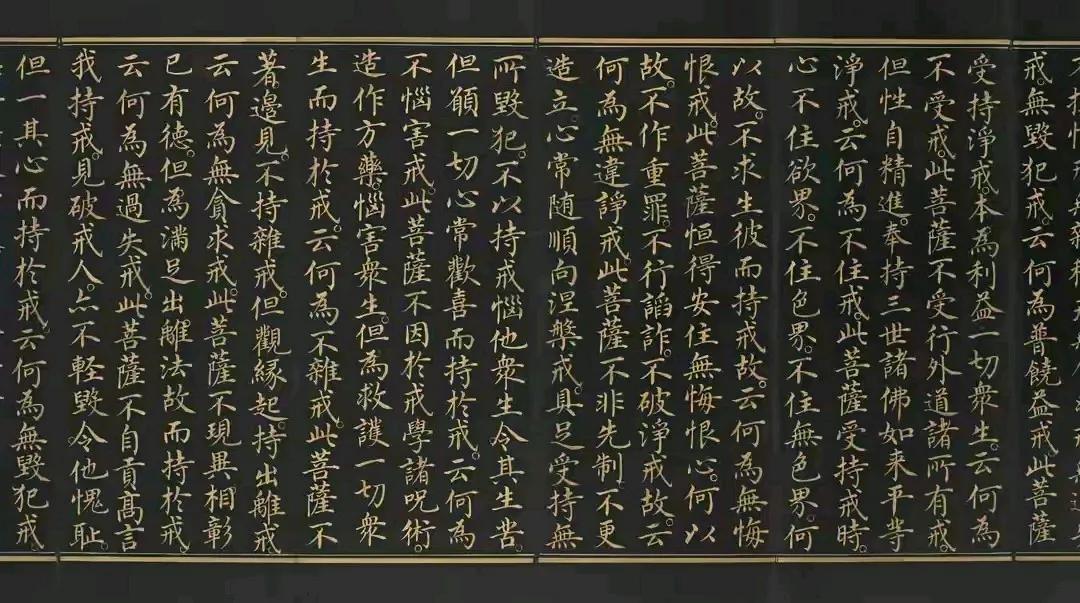 戒。無毀犯戒。云何為普饒益戒此菩薩
受持淨戒。本為利益一切衆生。云何為
不受戒。此菩薩不受行外道諸所有戒。
但性自精進。奉持三世諸佛如来平等
淨戒。云何為不住戒。此菩薩受持戒時。
心不住欲界。不住色界。不住無色界。何
以故。不求生彼而持戒故。云何為無悔
恨戒。此菩薩恒得安住無悔恨心。何以
故。不作重罪。不行諂詐。不破淨戒故。云
何為無違諍戒。此菩薩不非先制。不更
造立。心常随順向涅槃戒。具足受持無
所毀犯。不以持戒惱他衆生令其生苦。
但願一切心常歡喜而持於戒。云何為
不惱害戒。此菩薩不因於戒學諸呪術。
造作方藥。惱害衆生。但為救護一切衆
生而持於戒。云何為不雜戒。此菩薩不
著。邊見。不持雜戒。但觀緣起。持出離戒
云何為無貪求戒。此菩薩不現異相彰
已有德。但為滿足出離法故而持於戒。
云何為無過失戒。此菩薩不自貢高言
我持戒。見破戒人。亦不輕毀。令他愧恥。
但一其心而持於戒。云何為無毀犯戒。